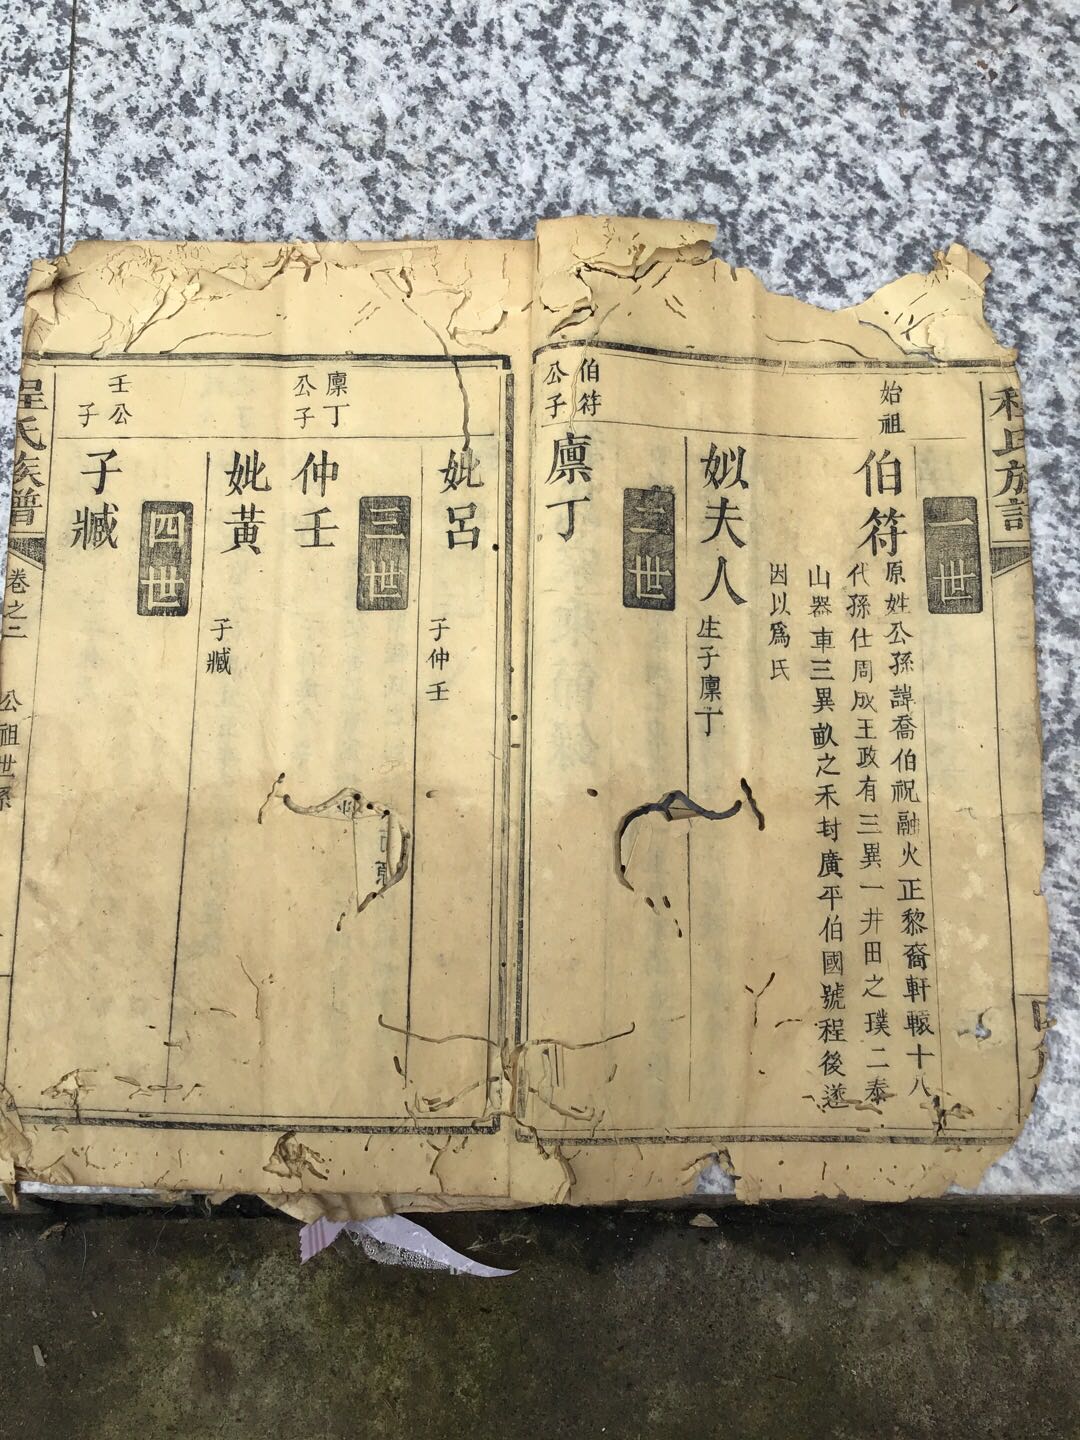 程氏族譜
一世
始祖
伯符
原姓公孫諱喬伯祝融火正黎裔軒轅十八
代孫仕周成王政有三異一井田之璞二泰
山器車三異畝之禾封廣平伯國號程後遂
因以爲氏
姒夫人
生子廪丁
二世
伯符
公子
廪丁
妣呂
子仲壬
三世
廪丁
公子
仲壬
妣黃
子臧
四世
壬公
子
子臧
程氏族譜
卷之二
公祖世系